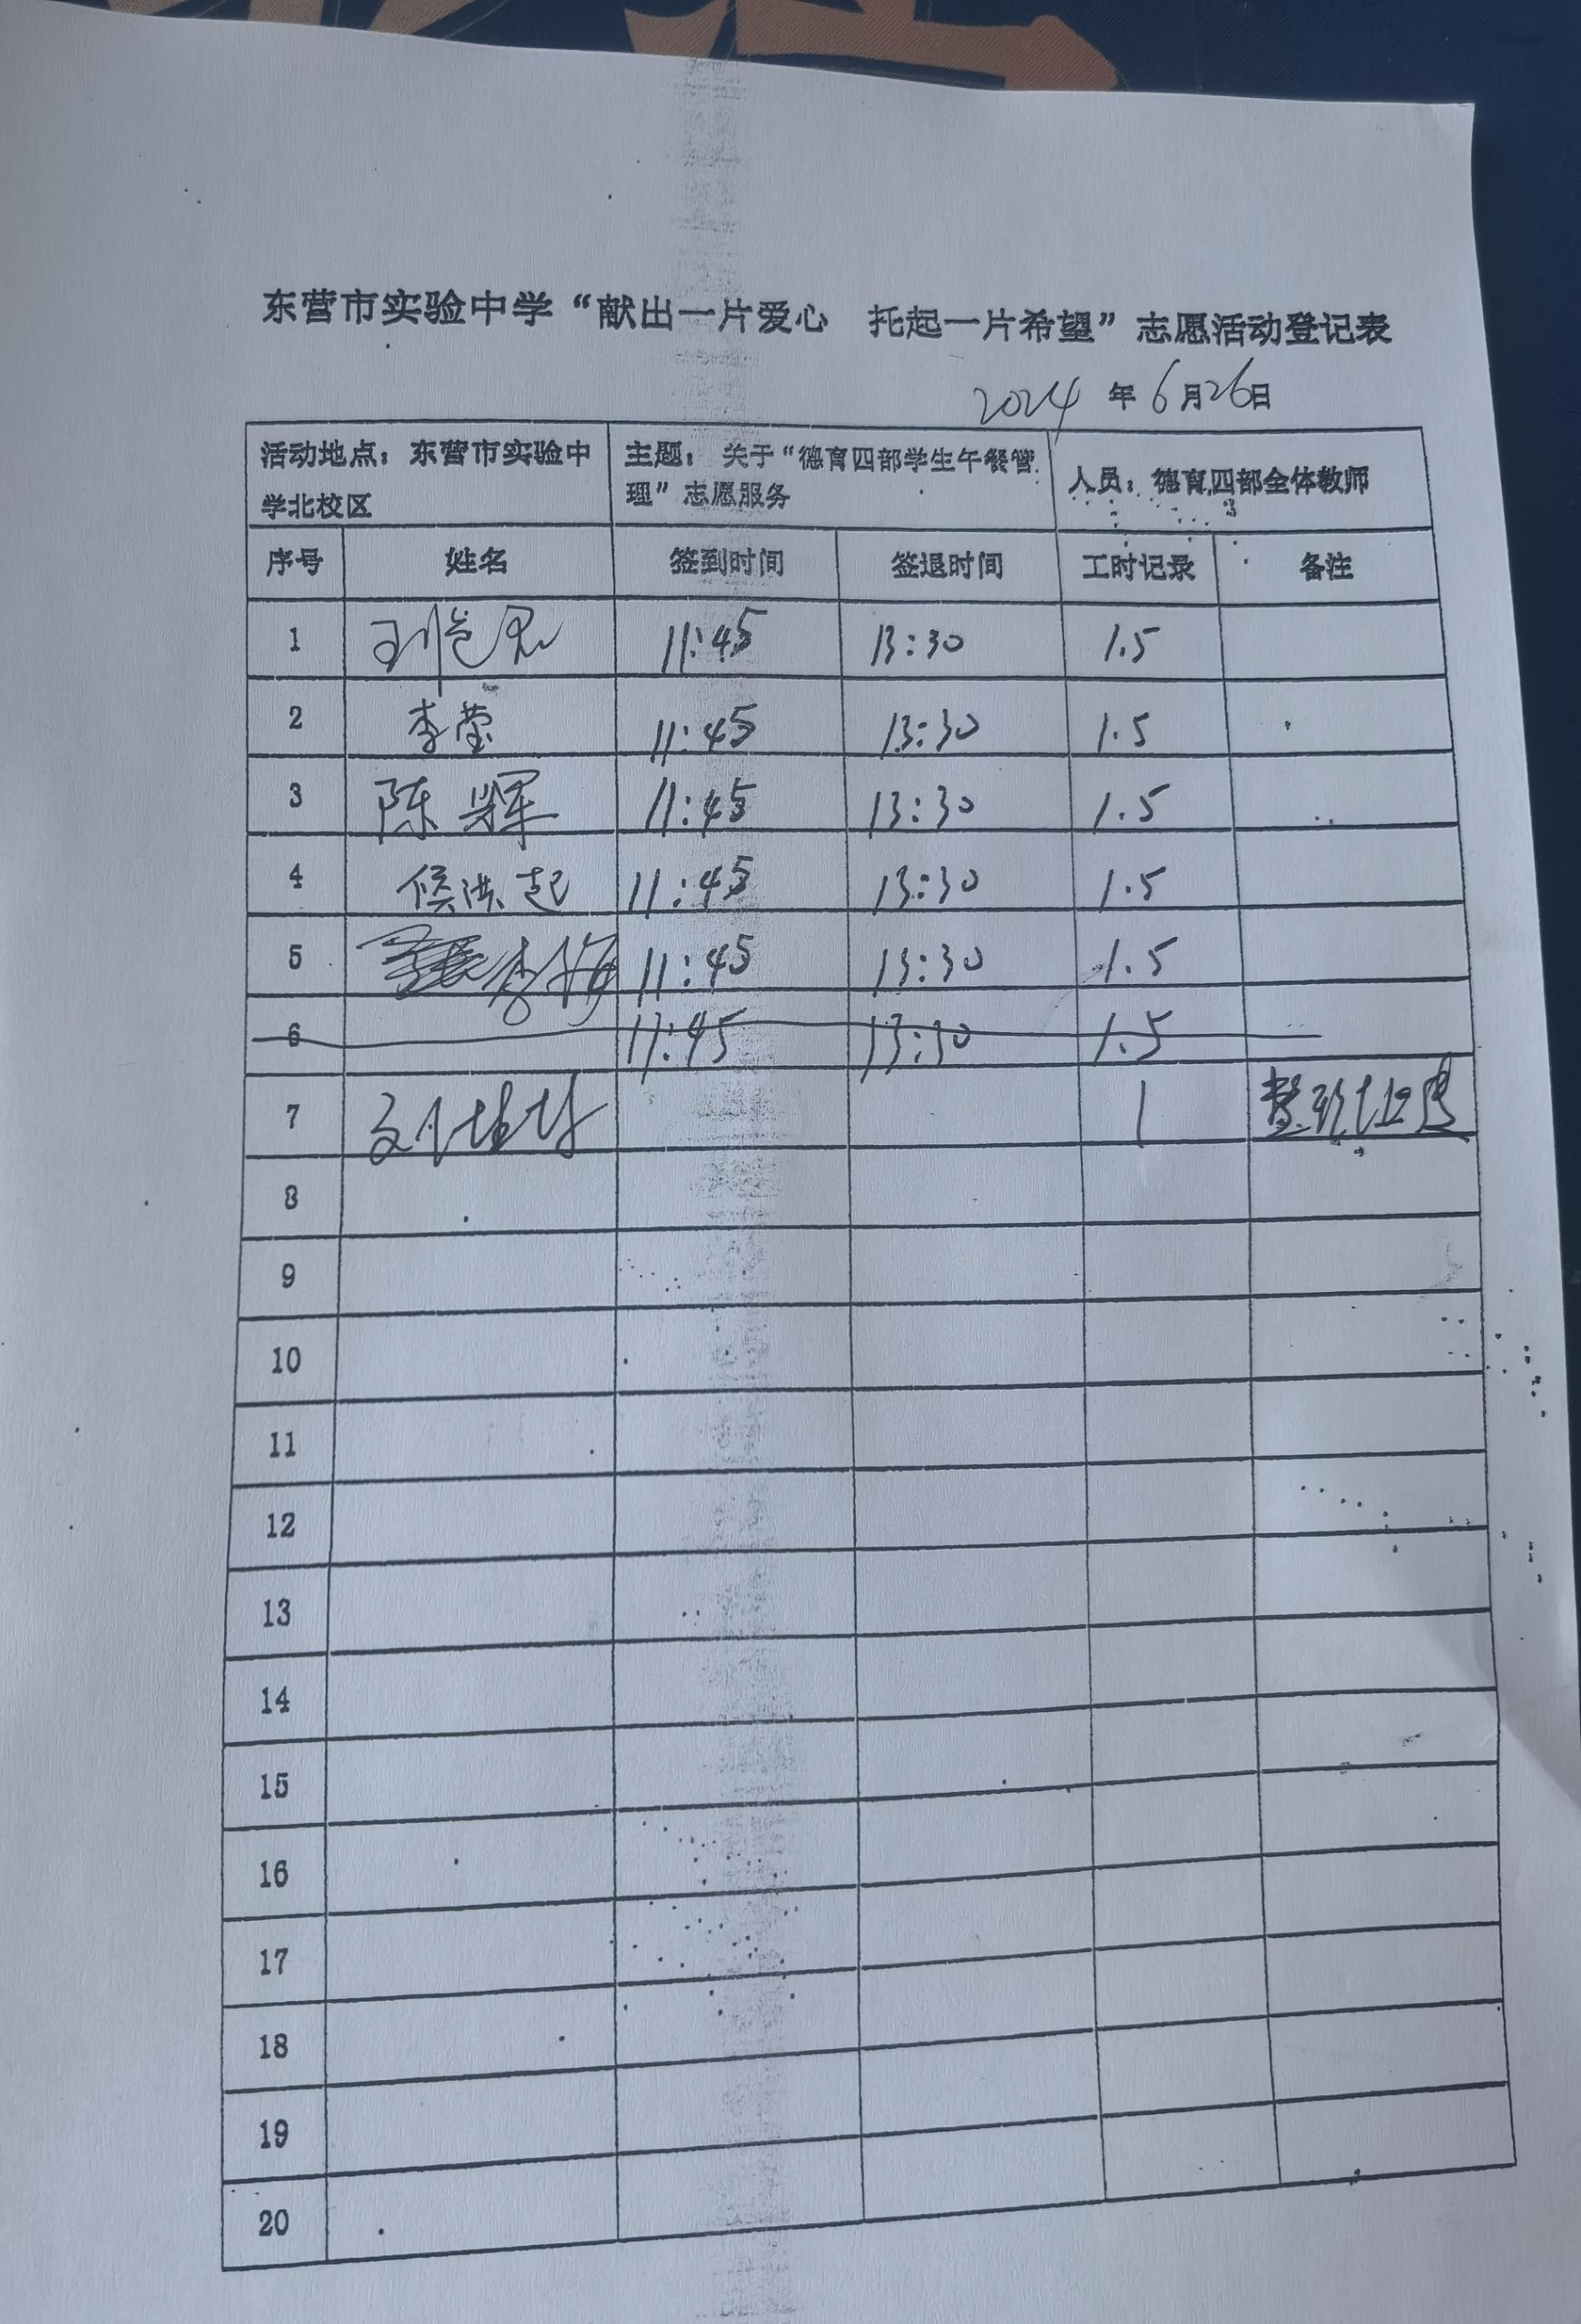 东营市实验中学“献出一片爱心 托起一片希望”志愿活动登记表
2024年6月26日
活动地点：东营市实验中学北校区 主题：关于“德育四部学生午餐管理”志愿服务 人员：德育四部全体教师
序号 姓名 签到时间 签退时间 工时记录 备注
1 11:45 13:30 1.5
2 李莹 11:45 13:30 1.5
3 陈辉 11:45 13:30 1.5
4 侯洪起 11:45 13:30 1.5
5 李梅 11:45 13:30 1.5
6 11:45 13:30 1.5
7 刘 1 整理
8
9
10
11
12
13
14
15
16
17
18
19
20